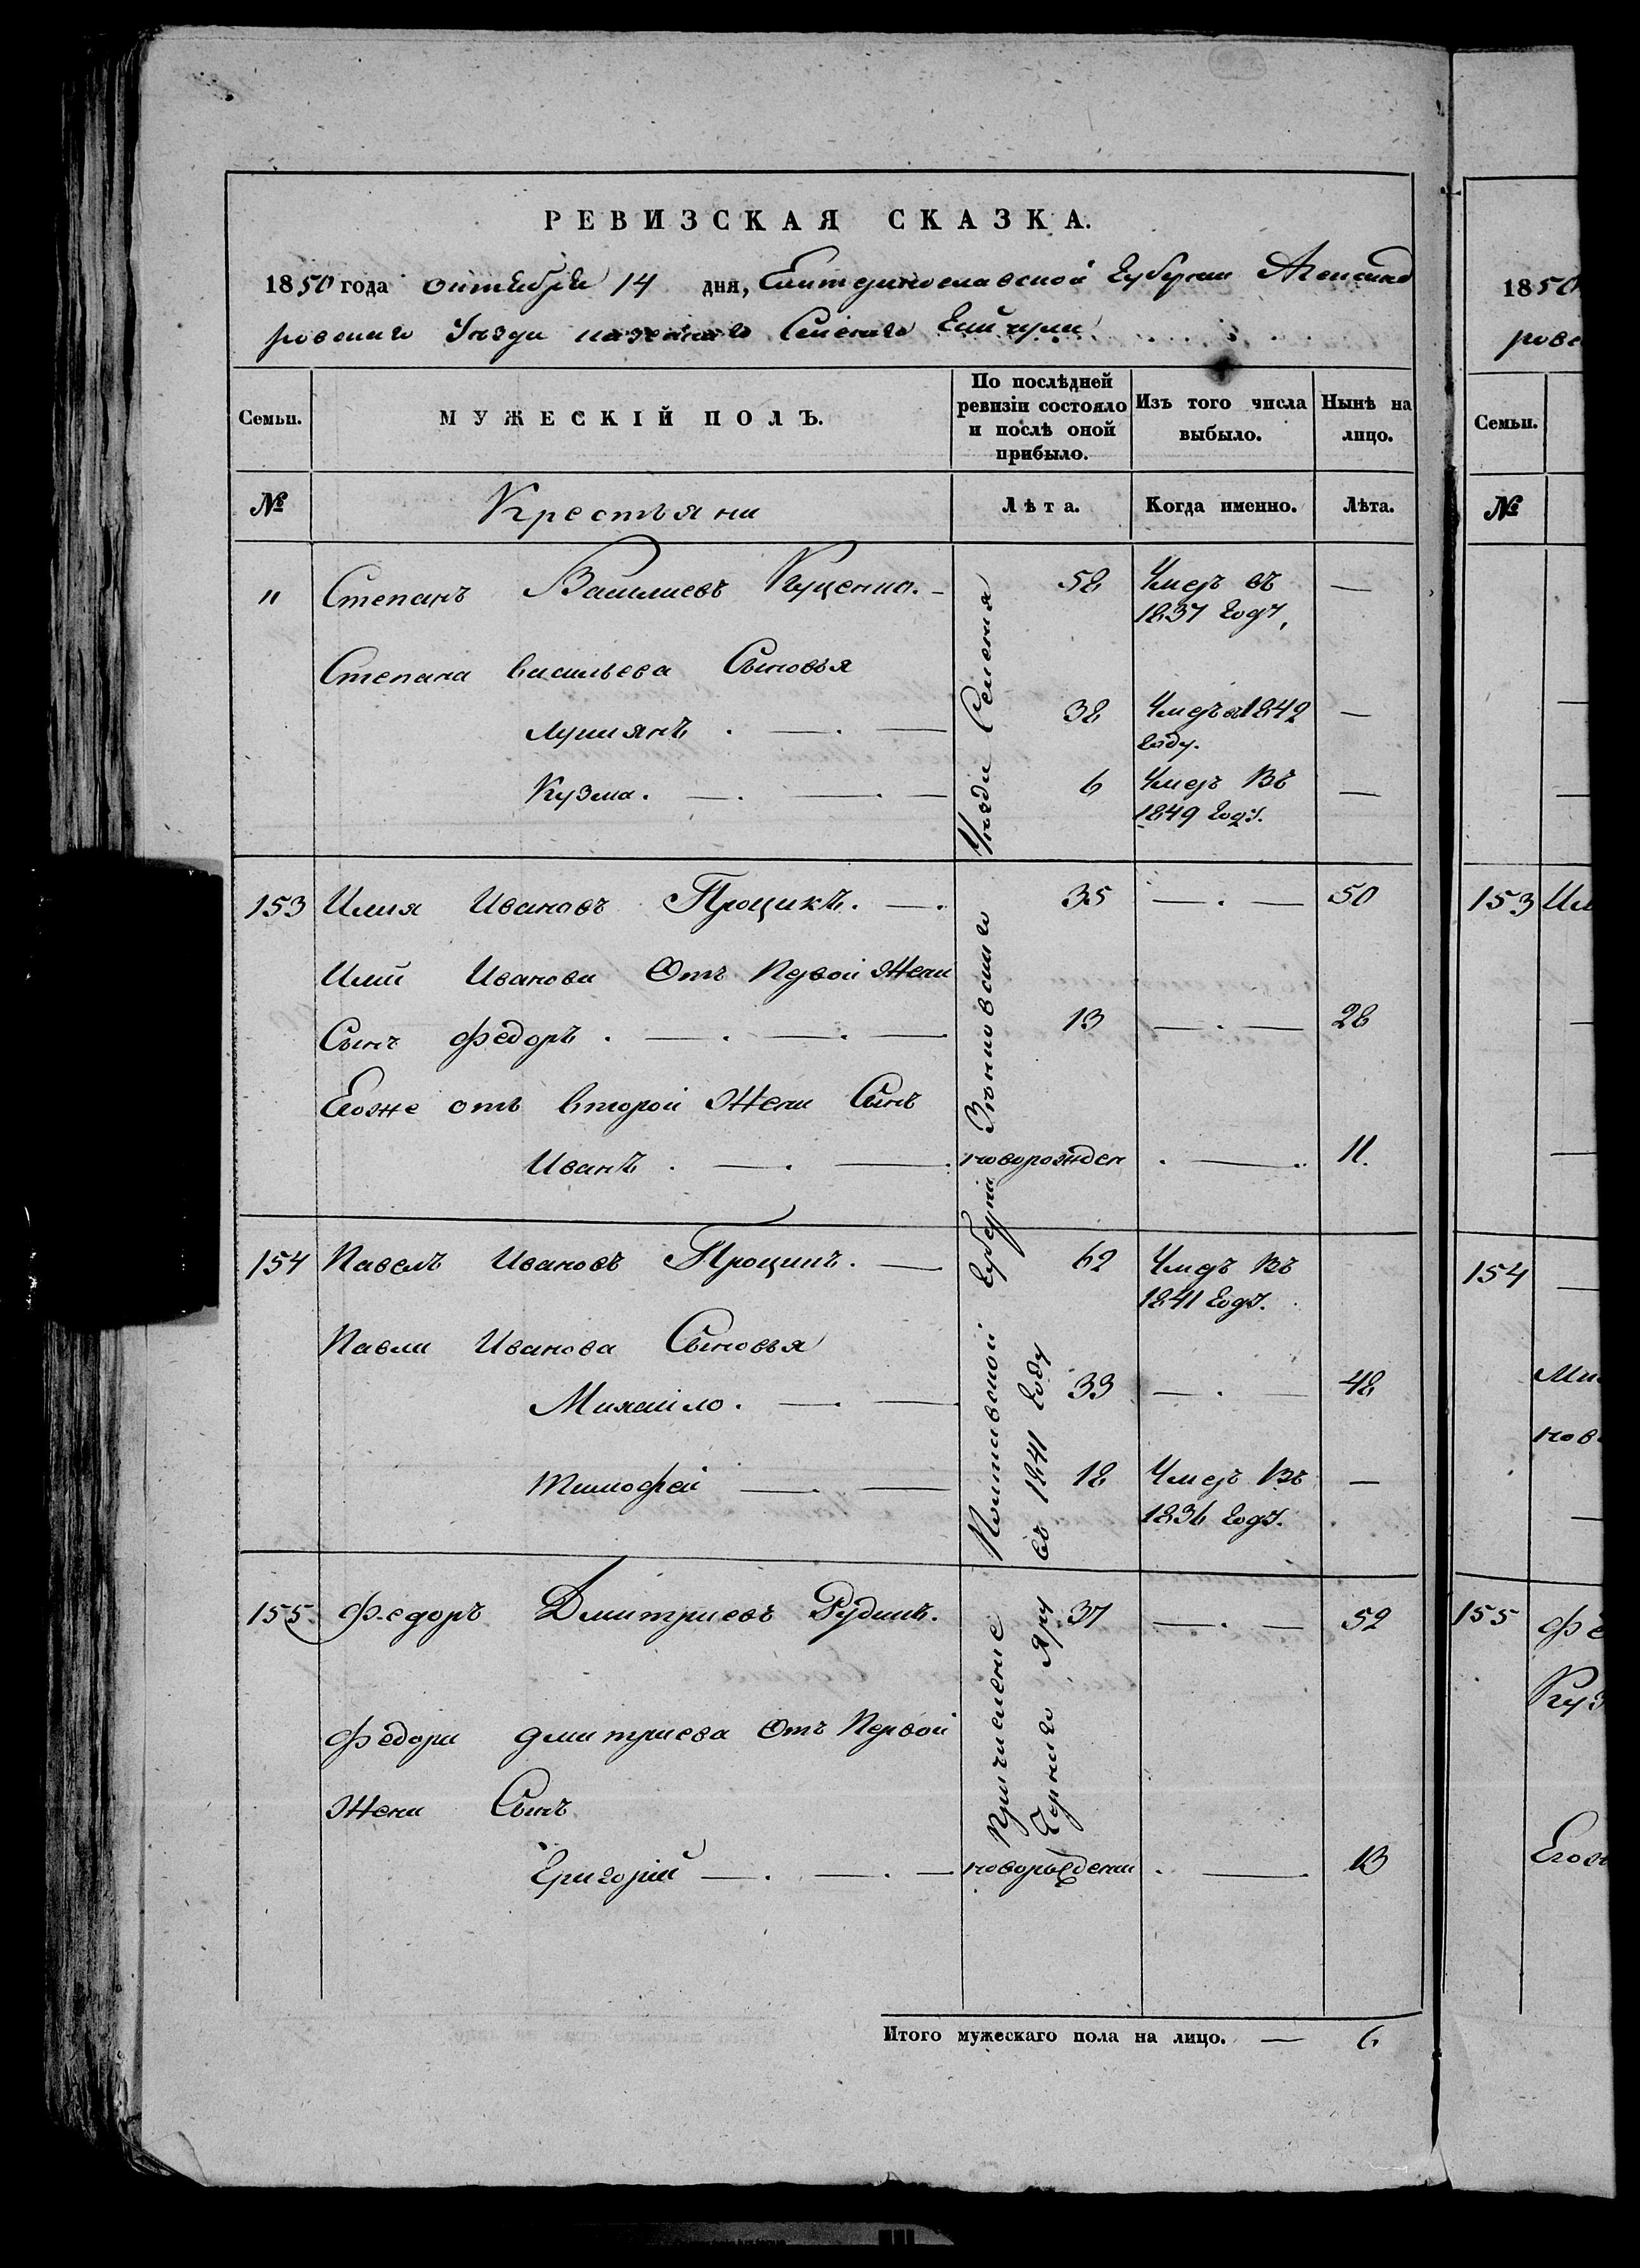 РЕВИЗСКАЯ СКАЗКА.
1850 года октября 14 дня, Екатеринославской Губернии Александ
ровскаго Уезда казеннаго Селения
Семьи.
МУЖЕСКІЙ ПОЛЪ.
По послѣдней ревизіи состояло и послѣ оной прибыло.
Изъ того числа выбыло.
Нынѣ на лицо.
№
Крестьяни
Лѣта.
Когда именно.
Лѣта.
" Степанъ Василиевъ Куценко. 58 Умеръ въ —
1837 Году,
Степана васильева Сыновья
Лукиянъ 38 Умеръ в 1842 —
году.
Кузма. 6 Умеръ Въ —
1849 Году.
153 Илия Ивановъ Процикъ. 35 — 50
Илии Иванова Отъ Первой Жени
Сынъ Федоръ 13 — 28
Егоже отъ второй Жени Сынъ
Иванъ новорожден — 11.
154 Павелъ Ивановъ Процикъ. 62 Умеръ Въ
1841 Году.
Павла Иванова Сыновья
Михаило. 33 — 48
Тимофей 18 Умеръ Въ —
1836 Году.
155 Федоръ Дмитриевъ Рудикъ. 37 — 52
Федора дмитриева Отъ Первой
Жени Сынъ
Григорий новорожденн — 13
Причислени Полтавской Губерни Зѣньковскаго Уѣзда Селения
Чорнаго Яру въ 1841 Году
Итого мужескаго пола на лицо. — 6
1850
рове
Семьи.
№
153 Ил
154
Ми
нов
155 Фе
Куз
Егож